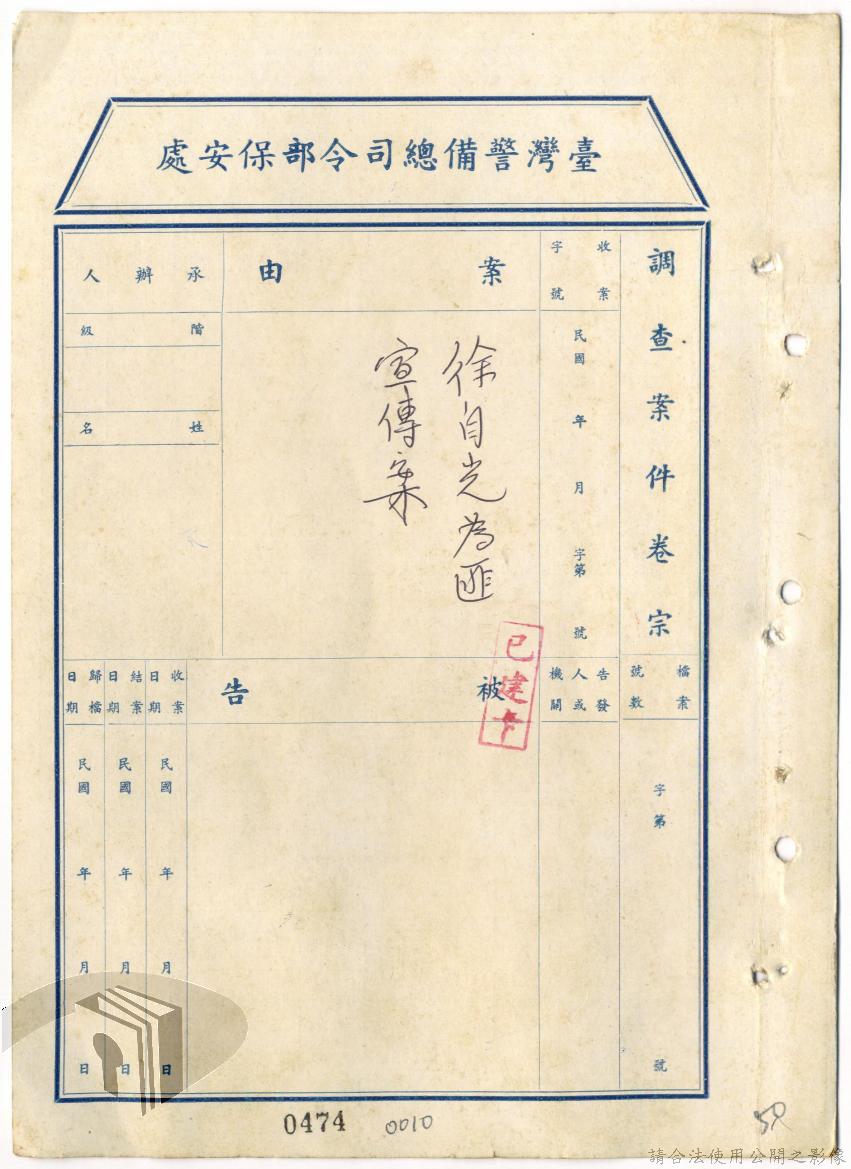 臺灣警備總司令部保安處
調查案件卷宗
檔案號數
字第 號
收案字號
民國 年 月 字第 號
告發人或機關
案由
徐自光為匪
宣傳案
被告
已建卡
承辦人
階級
姓名
收案日期
民國 年 月 日
結案日期
民國 年 月 日
歸檔日期
民國 年 月 日
0474
0010
請合法使用公開之影像